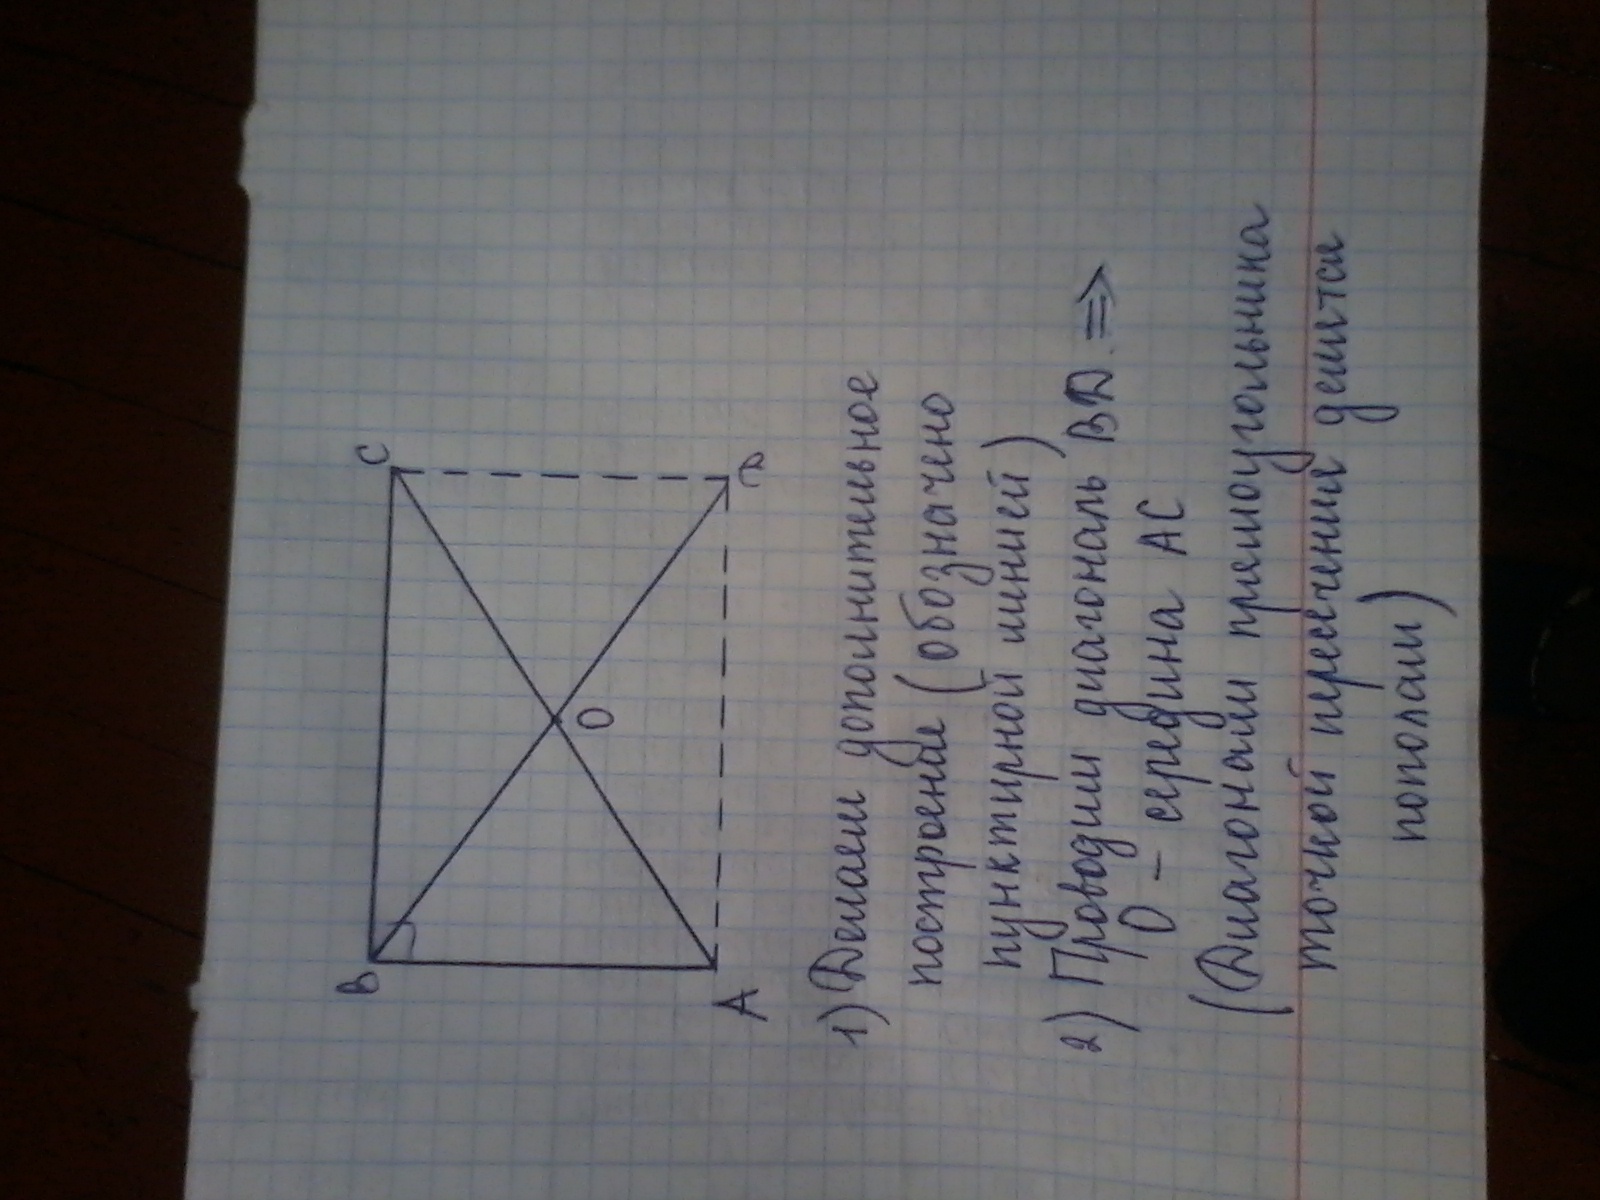 B
C
O
A
D
1) Делаем дополнительное
построение (обозначено
пунктирной линией)
2) Проводим диагональ BD. =>
O - середина AC
(Диагонали прямоугольника
точкой пересечения делится
пополам)